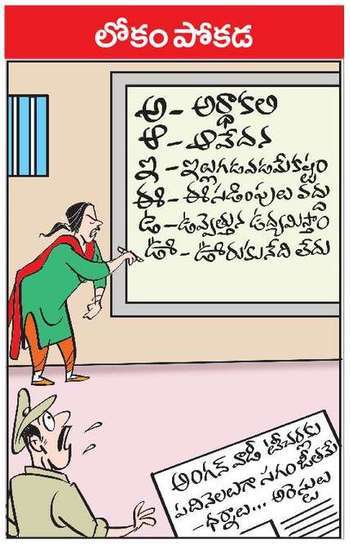 లోకం పోకడ
అ - అర్ధాకలి
ఆ - ఆవేదన
ఇ - ఇల్లుగడవడమేకష్టం
ఈ - ఈసడింపులు వద్దు
ఉ - ఉవ్వెత్తున ఉద్యమిస్తాం
ఊ - ఊరుకునేది లేదు
అంగన్ వాడీ టీచర్లకు
పదినెలలుగా సగం జీతమే
- ధర్నాలు... అరెస్టులు